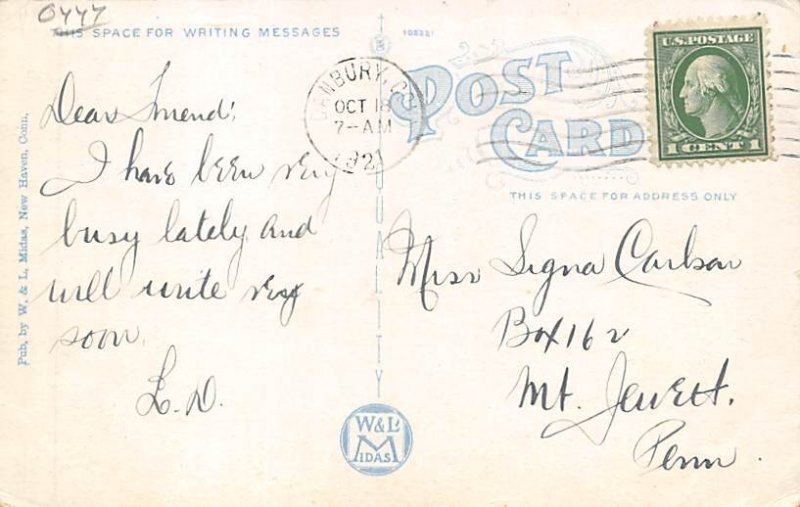 0447
THIS SPACE FOR WRITING MESSAGES
Dear Friend;
I have been very
busy lately and
will write very
soon.
L.D.
Pub. by W. & L. Midas, New Haven, Conn.
QUALITY
W&L
MIDAS
DANBURY, CT.
OCT 18
7-AM
1921
POST
CARD
U.S.POSTAGE
1 CENT 1
THIS SPACE FOR ADDRESS ONLY
Miss Signa Carlson
Box 162
Mt. Jewett.
Penn.